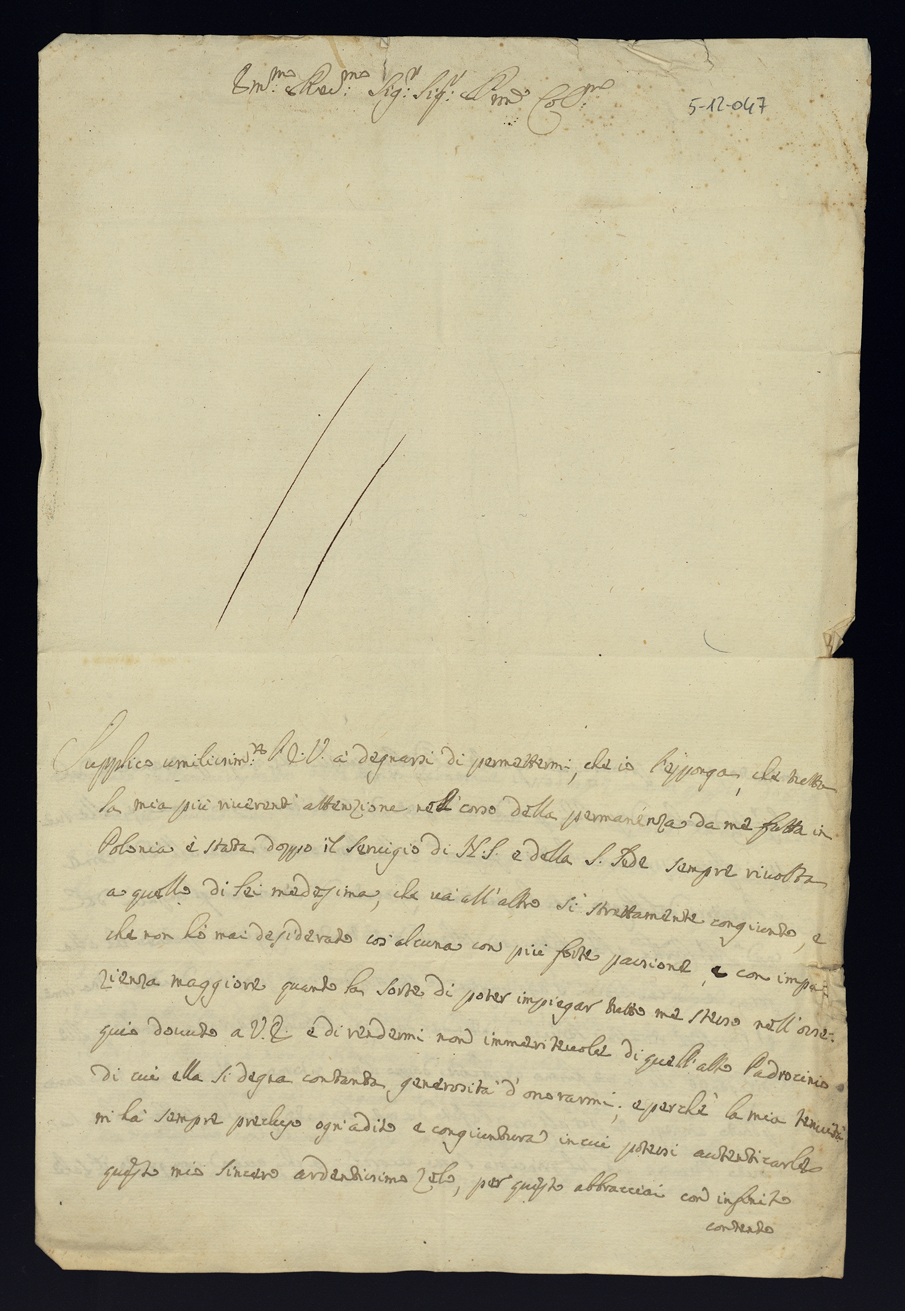 Em.mo e Rev.mo Sig.r Sig.r P.rone Col.mo
5-12-047
Supplico umilissim.te l'E. V. à degnarsi di permettermi, che io l'esponga, che tutta
la mia più riverente attenzione nell'corso della permanenza da me fatta in
Polonia è stata doppo il Servigio di N. S. e della S. Sede sempre rivolta
a quello di Lei medesima, che và all'altro sì strettamente congiunto, e
che non hò mai desiderato cos'alcuna con più forte passione, e con impa=
zienza maggiore quanto la sorte di poter impiegar tutto me stesso nell'osse=
quio dovuto a V. E. e di rendermi non immeritevole di quell'alto Padrocinio
di cui ella si degna contanta generosità d'onorarmi; e perchè la mia tenuità
mi hà sempre precluso ogn'adito e congiuntura in cui potessi autenticarle
questo mio sincero ardentissimo zelo, per questo abbracciai con infinito
contento